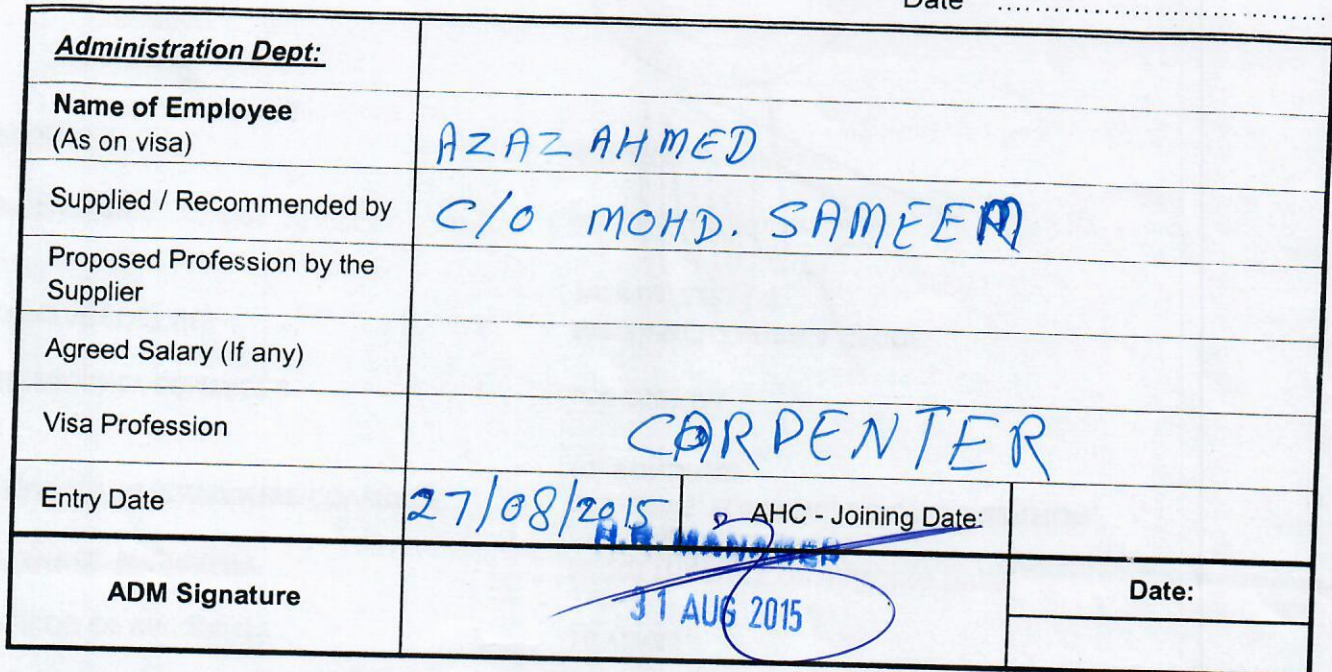 Date ........................................
Administration Dept:
Name of Employee
(As on visa)
AZAZ AHMED
Supplied / Recommended by
C/O MOHD. SAMEER
Proposed Profession by the
Supplier
Agreed Salary (If any)
Visa Profession
CARPENTER
Entry Date
27/08/2015
AHC - Joining Date:
H.R. MANAGER
ADM Signature
31 AUG 2015
Date: